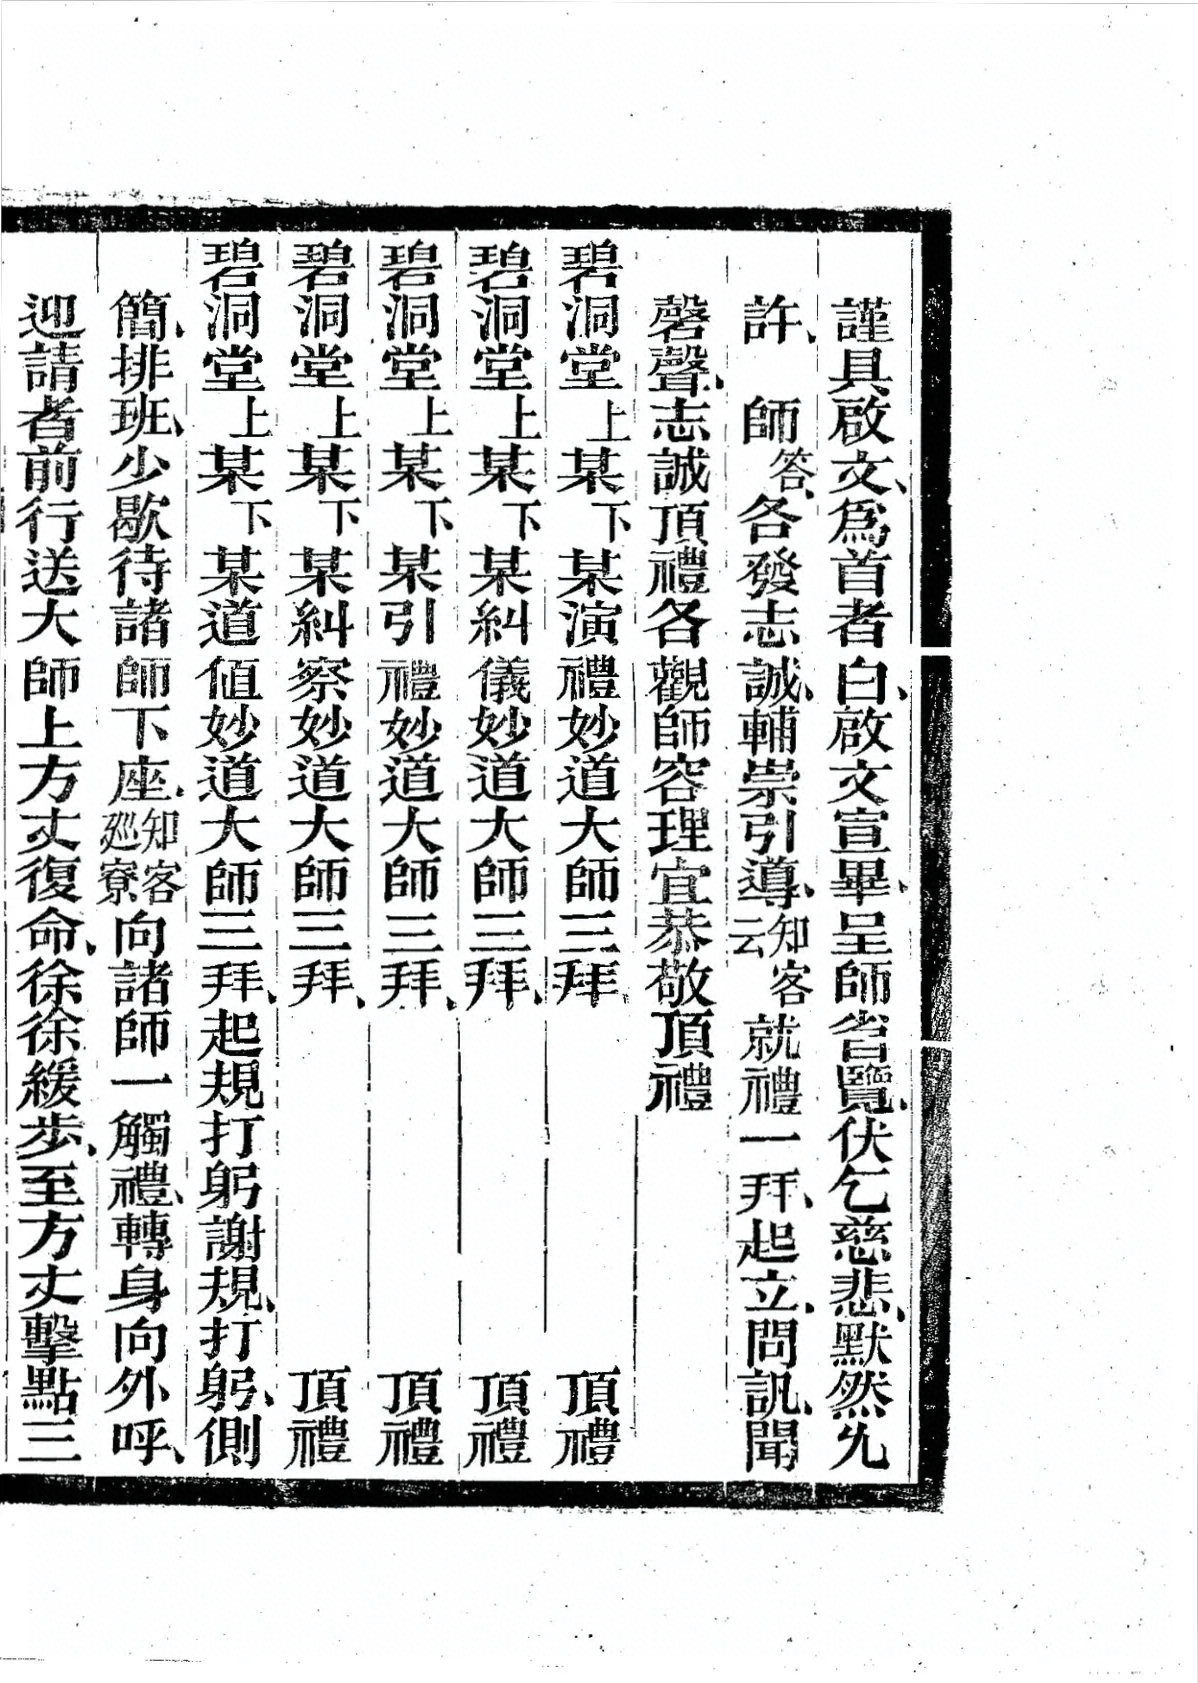 謹具啟文、爲首者白、啟文宣畢、呈師省覽、伏乞慈悲、默然允
許、師答、各發志誠、輔崇引導、知客云就禮一拜、起立、問訊、聞
磬聲、志誠頂禮各觀師容理宜恭敬頂禮
碧洞堂上某下某演禮妙道大師三拜、頂禮
碧洞堂上某下某糾儀妙道大師三拜、頂禮
碧洞堂上某下某引禮妙道大師三拜、頂禮
碧洞堂上某下某糾察妙道大師三拜、頂禮
碧洞堂上某下某道値妙道大師三拜、起規打躬謝規、打躬、側
簡、排班、少歇待諸師下座、知客廵寮向諸師一觸禮、轉身向外呼、
迎請者前行送大師上方丈復命、徐徐緩步、至方丈擊點三